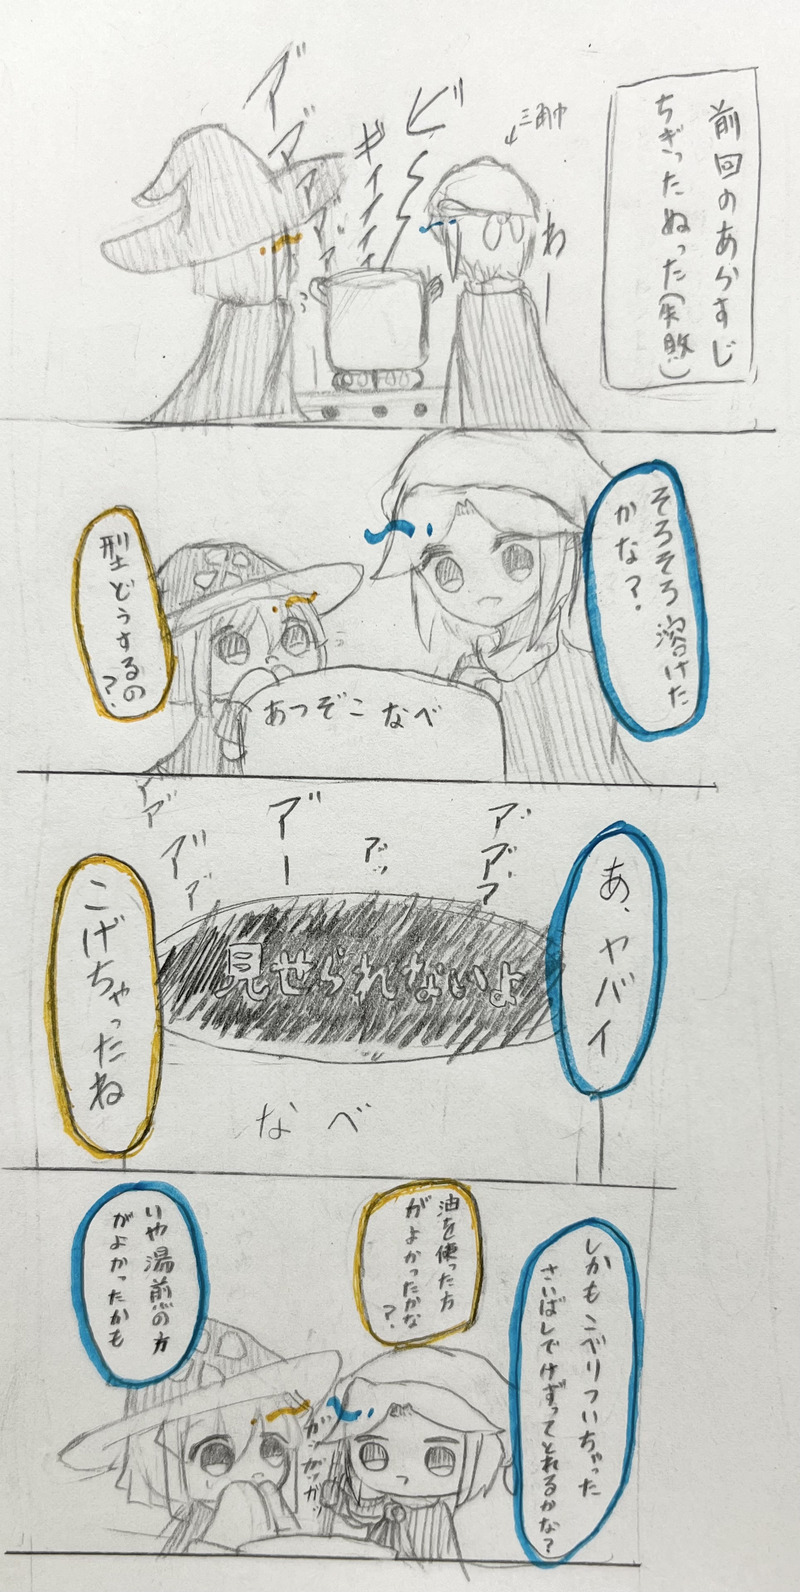 前回のあらすじ
ちぎったぬった(失敗)
三角巾
わー
ビーーー
ギィイイイ
アアアアア
そろそろ溶けた
かな?
型どうするの
?
あつぞこなべ
あ、ヤバイ
アアア
アッ
アー
アアア
見せられないよ
こげちゃったね
なべ
しかもこべりついちゃった
さいばしでけずってとれるかな?
油を使った方
がよかったかな
?
いや湯煎の方
がよかったかも
ガッガッガッ